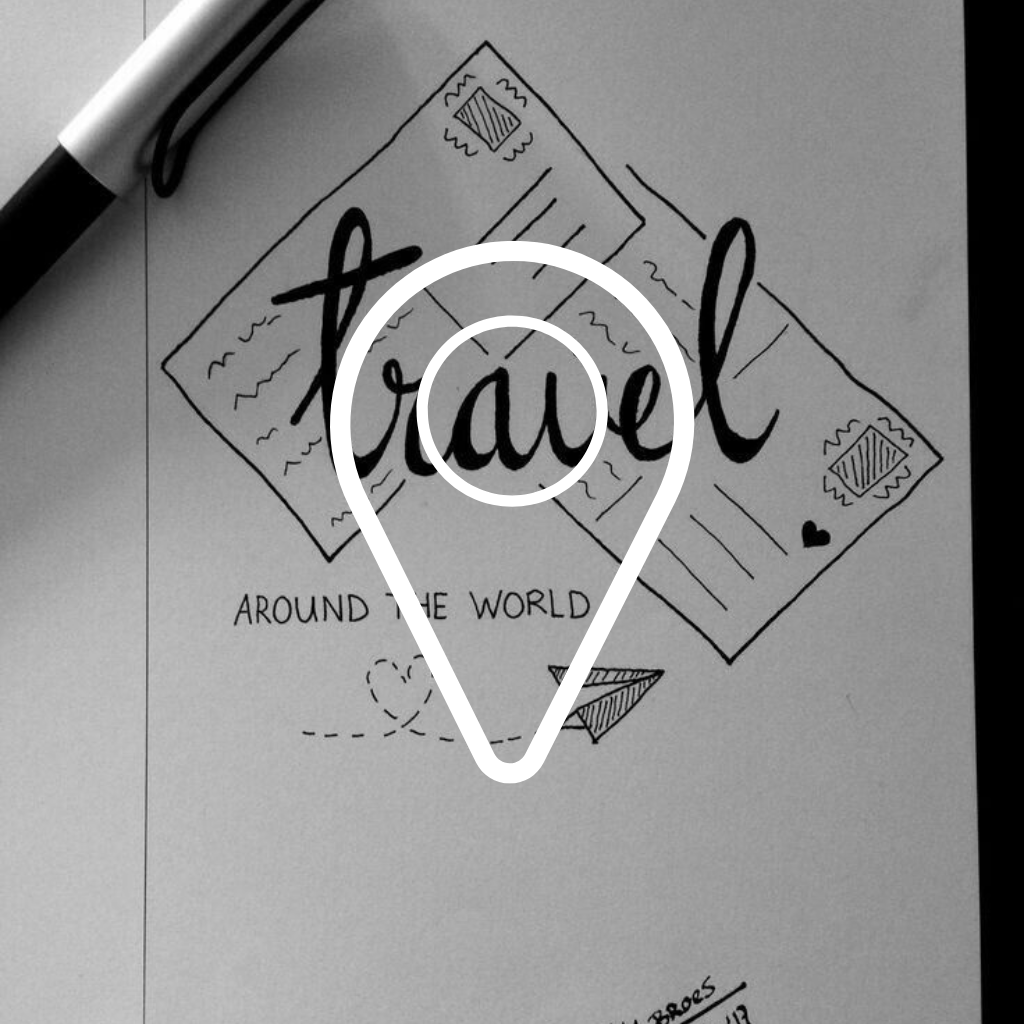 travel
AROUND THE WORLD
BROES